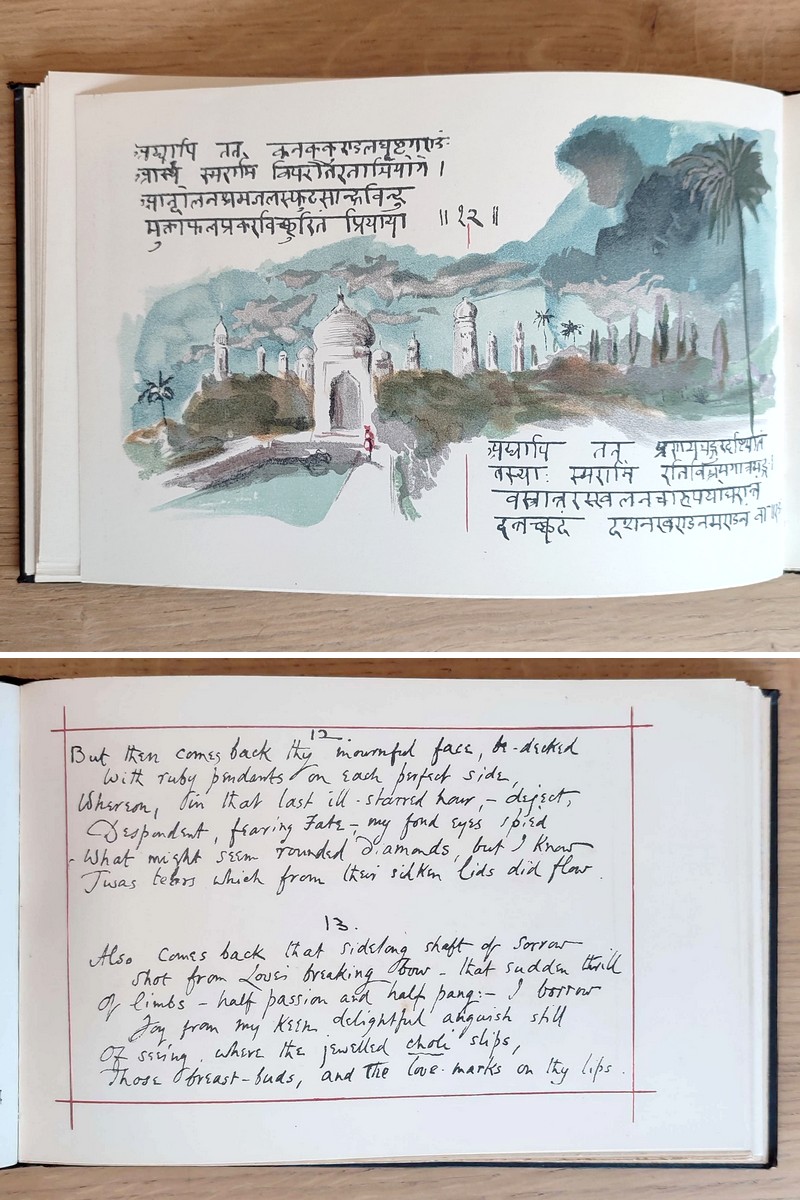 अद्यापि तत् कनककुण्डलघृष्टगण्डं
मास्यं स्मरामि विपरीतरताभियोगे ।
आन्दोलनश्रमजलस्फुटसान्द्रविन्दु
मुक्ताफलप्रकरविच्छुरितं प्रियाया ॥१२॥
अद्यापि तत्
तस्याः स्मरामि
वस्त्रान्तरस्खलनचारुपयोधरान्तं
दन्तच्छदं दशनखण्डनमण्डनं
12.
But then comes back thy mournful face, be-decked
With ruby pendants on each perfect side,
Whereon, in that last ill-starred hour, - deject,
Despondent, fearing Fate -, my fond eyes spied
- What might seem rounded diamonds, but I know
Twas tears which from their silken lids did flow.
13.
Also comes back that sidelong shaft of sorrow
Shot from Love's breaking bow - that sudden thrill
Of limbs - half passion and half pang:- I borrow
Joy from my keen delightful anguish still
Of seeing, where the jewelled choli slips,
Those breast-buds, and the love-marks on thy lips.